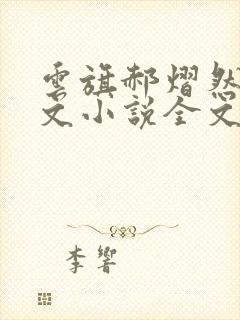 雲旗郝熠然
文小說全文
李響